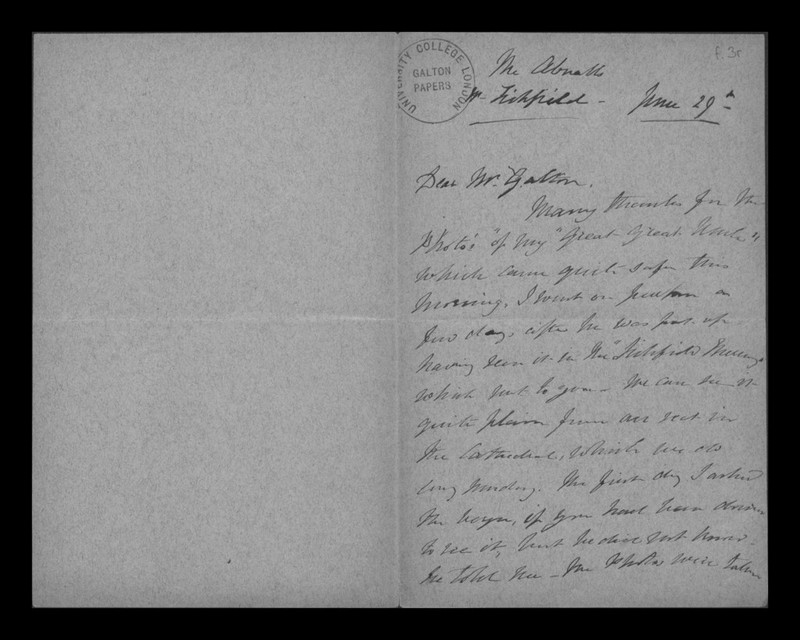 UNIVERSITY COLLEGE LONDON
GALTON
PAPERS
The
Nr Lichfield - June 29th
Dear Mr. Galton.
Many thanks for the
Photo's "of my "Great Great Uncle"
which came quite safe this
morning, I went on purpose a
few days after he was put up
having seen it in the "Lichfield Mercury"
which sent to you - We can see it
quite plain from our seat in
the Cathedral, which we do
every Sunday. The first day I asked
the verger, if you had been down
to see it, but he did not know.
he told me - the Photos were taken